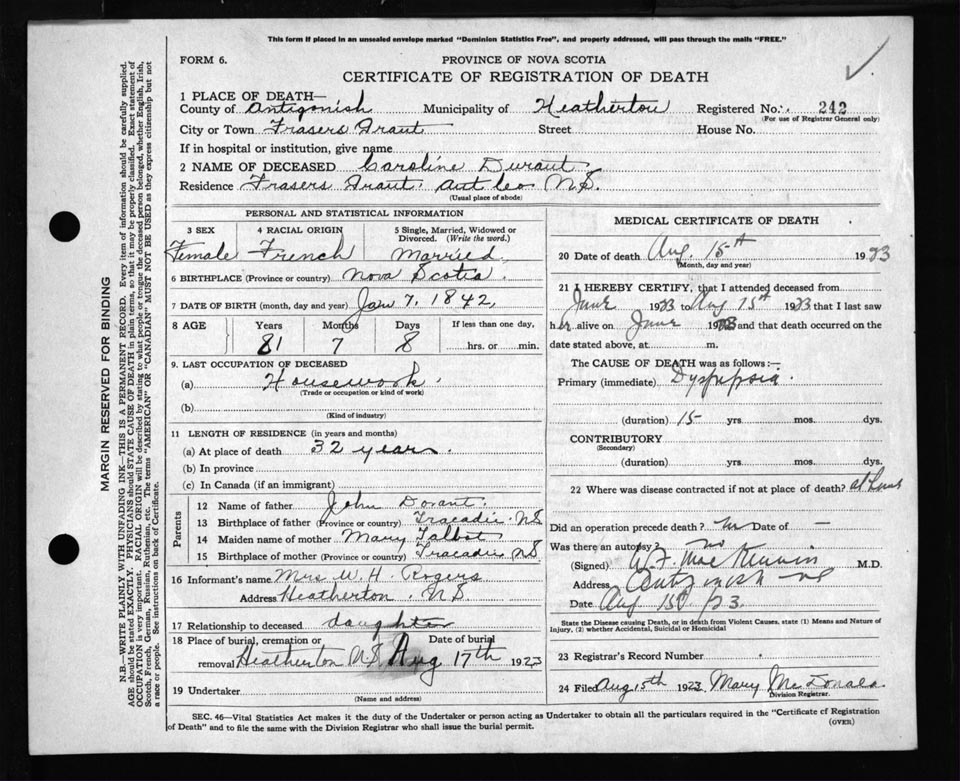 This form if placed in an unsealed envelope marked "Dominion Statistics Free", and properly addressed, will pass through the mails "FREE."
FORM 6.
PROVINCE OF NOVA SCOTIA
CERTIFICATE OF REGISTRATION OF DEATH
1 PLACE OF DEATH—
County of Antigonish Municipality of Heatherton Registered No. 242
(For use of Registrar General only)
City or Town Frasers Grant Street House No.
If in hospital or institution, give name
2 NAME OF DECEASED Caroline Durant
Residence Frasers Grant. Ant Co N.S.
(Usual place of abode)
PERSONAL AND STATISTICAL INFORMATION
3 SEX 4 RACIAL ORIGIN 5 Single, Married, Widowed or
Divorced. (Write the word.)
Female French Married
6 BIRTHPLACE (Province or country) Nova Scotia
7 DATE OF BIRTH (month, day and year) Jan 7, 1842
8 AGE Years Months Days If less than one day,
81 7 8 hrs. or min.
9. LAST OCCUPATION OF DECEASED
(a) Housework.
(Trade or occupation or kind of work)
(b)
(Kind of industry)
11 LENGTH OF RESIDENCE (in years and months)
(a) At place of death 32 years.
(b) In province
(c) In Canada (if an immigrant)
Parents
12 Name of father John Dorant
13 Birthplace of father (Province or country) Tracadie NS
14 Maiden name of mother Mary Talbot
15 Birthplace of mother (Province or country) Tracadie NS
16 Informant's name Mrs W. H. Rogers
Address Heatherton. N.S
17 Relationship to deceased daughter
18 Place of burial, cremation or Date of burial
removal Heatherton N.S Aug 17th 1923
19 Undertaker
(Name and address)
MEDICAL CERTIFICATE OF DEATH
20 Date of death Aug. 15th 1923
(Month, day and year)
21 I HEREBY CERTIFY, that I attended deceased from
June 1923 to Aug 15th 1923 that I last saw
her alive on June 1923 and that death occurred on the
date stated above, at m.
The CAUSE OF DEATH was as follows:—
Primary (immediate) Dyspepsia.
(duration) 15 yrs. mos. dys.
CONTRIBUTORY
(Secondary)
(duration) yrs. mos. dys.
22 Where was disease contracted if not at place of death?
Did an operation precede death? no Date of —
Was there an autopsy? no
(Signed) W. F. MacKinnon M.D.
Address Antigonish
Date Aug 15th /23.
State the Disease Causing Death, or in death from Violent Causes, state (1) Means and Nature of
Injury, (2) whether Accidental, Suicidal or Homicidal
23 Registrar's Record Number
24 Filed Aug 15th 1923 Mary McDonald
Division Registrar.
SEC. 46—Vital Statistics Act makes it the duty of the Undertaker or person acting as Undertaker to obtain all the particulars required in the "Certificate of Registration
of Death" and to file the same with the Division Registrar who shall issue the burial permit.
(OVER)
MARGIN RESERVED FOR BINDING
N.B.—WRITE PLAINLY WITH UNFADING INK—THIS IS A PERMANENT RECORD. Every item of information should be carefully supplied.
AGE should be stated EXACTLY. PHYSICIANS should STATE CAUSE OF DEATH in plain terms, so that it may be properly classified. Exact statement of
OCCUPATION is very important. RACIAL ORIGIN will be described by stating to what people or tongue the deceased person belonged, whether English, Irish,
Scotch, French, German, Russian, Ruthenian, etc. The terms "AMERICAN" OR "CANADIAN" MUST NOT BE USED as they express citizenship but not
a race or people. See instructions on back of Certificate.